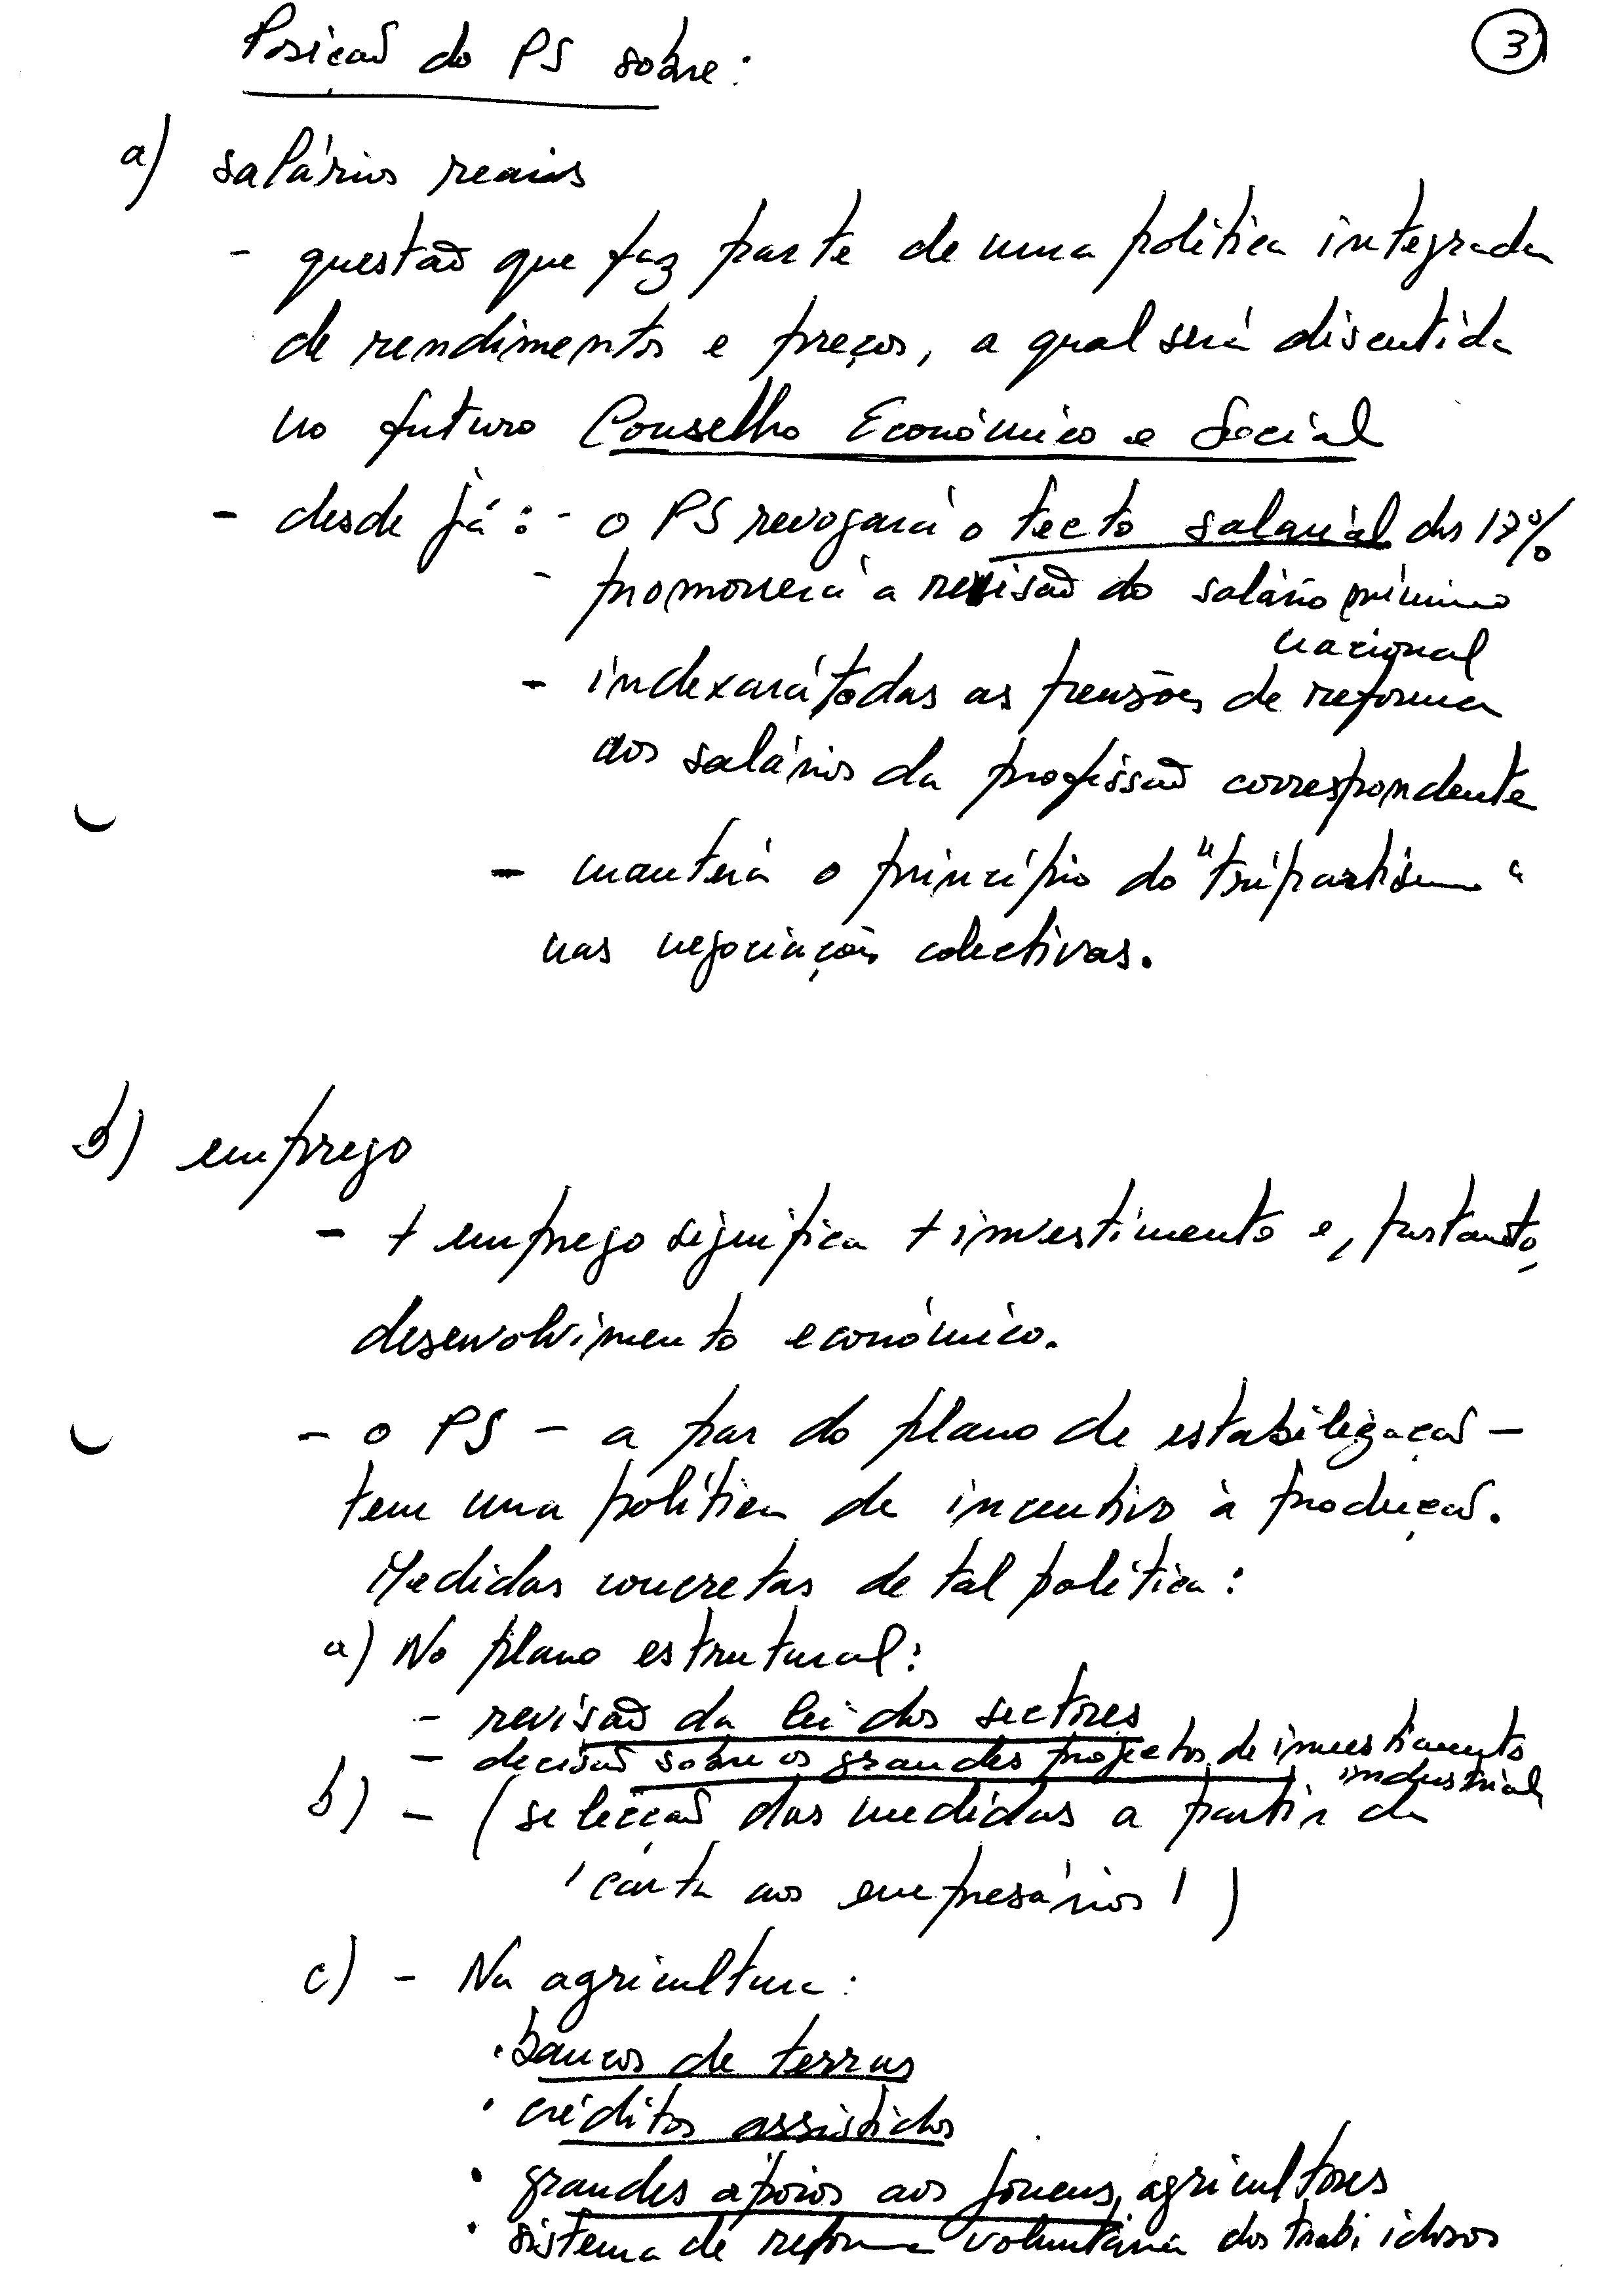 Posição do PS sobre:
3
a) salários reais
- questão que faz parte de uma política integrada
de rendimentos e preços, a qual será discutida
no futuro Conselho Económico e Social
- desde já: - o PS revogará o tecto salarial dos 17%
- promoverá a revisão do salário mínimo
nacional
- indexará todas as pensões de reforma
aos salários da profissão correspondente
- manterá o princípio do "tripartismo"
nas negociações colectivas.
b) emprego
- + emprego significa + investimento e, portanto,
desenvolvimento económico.
- o PS - a par do plano de estabilização -
tem uma política de incentivo à produção.
Medidas concretas de tal política:
a) No plano estrutural:
- revisão da lei dos sectores
- decisão sobre os grandes projectos de investimento
industrial
b) - (selecção das medidas a partir da
'carta aos empresários')
c) - Na agricultura:
· bancos de terras
· créditos assistidos
· grandes apoios aos jovens agricultores
· sistema de reforma voluntária dos trab. idosos